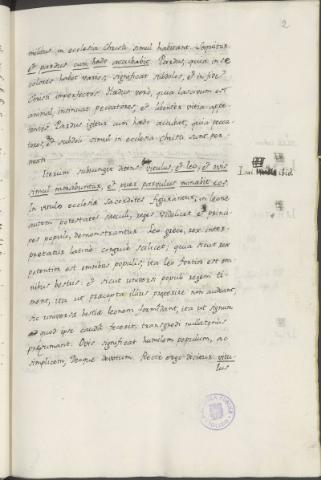 2
militibus in ecclesia Christi simul habitare. Sequitur
et pardus cum hædo accubabit. Pardus, quia in se
colores habet varios, significat
Christi imperfectos. Hædus vero, quia lascivum est
animal, insinuat peccatores, et libenter vitia appe-
tentes. Pardus igitur cum hædo accubat, quia pecca-
tores, et subdoli simul in ecclesia Christi sunt per-
Iterum subiungit dicens: vitulus, et leo, et ovis
simul morabuntur, et puer parvulus minabit eos.
Isai ibid.
In vitulo ecclesiæ sacerdotes figurantur, in leone
autem potestates sæculi, reges videlicet et princi-
pes populi, demonstrantur. Leo græce, rex inter-
pretatur latine: congrue scilicet, quia sicut rex
potentior est omnibus populis, ita leo fortior est om-
nibus bestiis: et sicut universi populi regem ti-
ment, ita ut præcepta illius præterire non audeant,
sic universæ bestiæ leonem formidant, ita ut signum
quod ipse caudæ fecerit, transgredi nullatenus
præsumant. Ovis significat humilem populum, ac
simplicem, Deoque devotum. Recte ergo dicitur: vitu-
lus